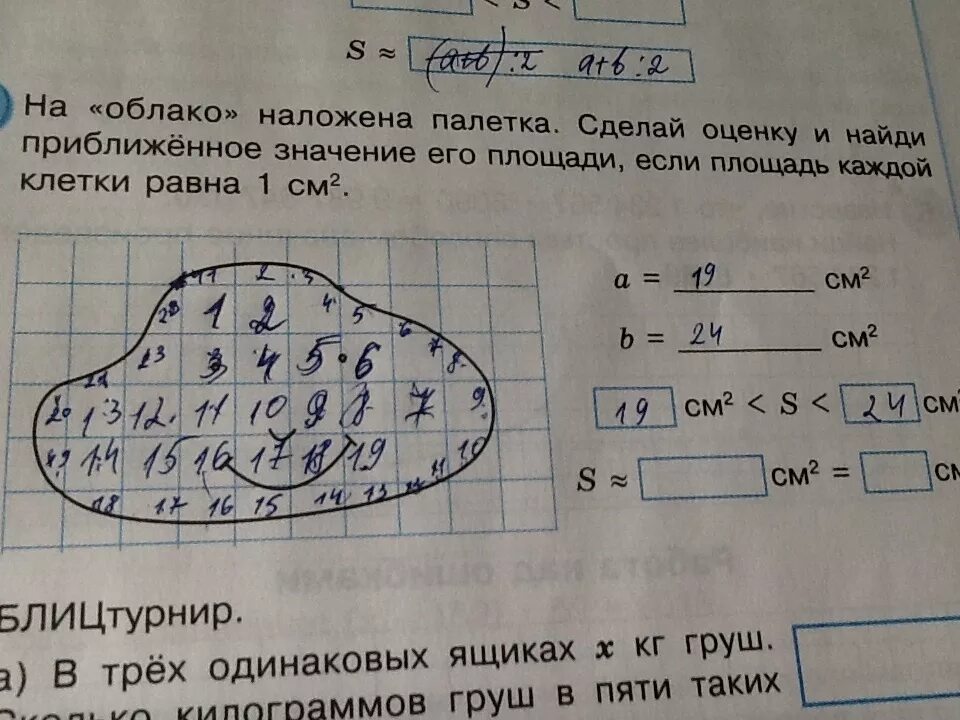 < S <
S ≈ (a+b):2 a+b:2
На «облако» наложена палетка. Сделай оценку и найди
приближённое значение его площади, если площадь каждой
клетки равна 1 см².
a = 19 см²
b = 24 см²
19 см² < S < 24 см
S ≈ см² = см
1 2 3
23 1 2 4 5 6
23 3 4 5 6 7 8
22
20 13 12 11 10 9 8 7 9
19 14 15 16 17 18 19 11 10
18 17 16 15 14 13 12
БЛИЦтурнир.
а) В трёх одинаковых ящиках x кг груш.
Сколько килограммов груш в пяти таких